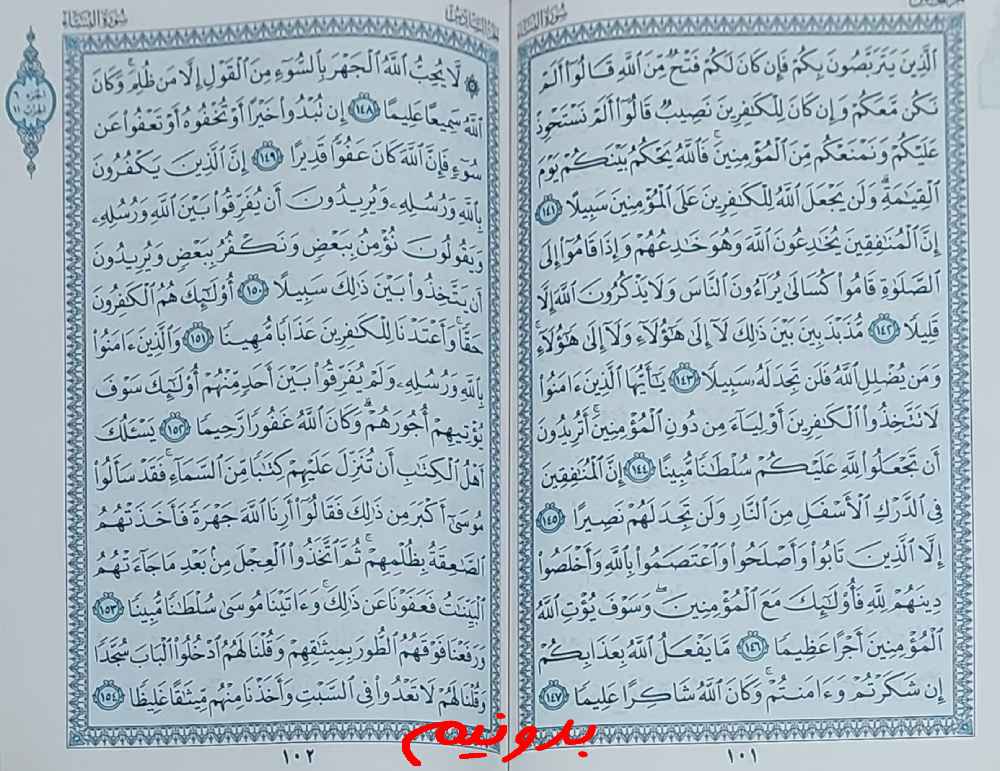 سُورَةُ النِّسَاءِ
الَّذِينَ يَتَرَبَّصُونَ بِكُمْ فَإِن كَانَ لَكُمْ فَتْحٌ مِّنَ اللَّهِ قَالُوا أَلَمْ
نَكُن مَّعَكُمْ وَإِن كَانَ لِلْكَافِرِينَ نَصِيبٌ قَالُوا أَلَمْ نَسْتَحْوِذْ
عَلَيْكُمْ وَنَمْنَعْكُم مِّنَ الْمُؤْمِنِينَ ۚ فَاللَّهُ يَحْكُمُ بَيْنَكُمْ يَوْمَ
الْقِيَامَةِ ۗ وَلَن يَجْعَلَ اللَّهُ لِلْكَافِرِينَ عَلَى الْمُؤْمِنِينَ سَبِيلًا ١٤١
إِنَّ الْمُنَافِقِينَ يُخَادِعُونَ اللَّهَ وَهُوَ خَادِعُهُمْ وَإِذَا قَامُوا إِلَى
الصَّلَوٰةِ قَامُوا كُسَالَىٰ يُرَاءُونَ النَّاسَ وَلَا يَذْكُرُونَ اللَّهَ إِلَّا
قَلِيلًا ١٤٢ مُّذَبْذَبِينَ بَيْنَ ذَٰلِكَ لَا إِلَىٰ هَٰؤُلَاءِ وَلَا إِلَىٰ هَٰؤُلَاءِ ۚ
وَمَن يُضْلِلِ اللَّهُ فَلَن تَجِدَ لَهُ سَبِيلًا ١٤٣ يَا أَيُّهَا الَّذِينَ ءَامَنُوا
لَا تَتَّخِذُوا الْكَافِرِينَ أَوْلِيَاءَ مِن دُونِ الْمُؤْمِنِينَ ۚ أَتُرِيدُونَ
أَن تَجْعَلُوا لِلَّهِ عَلَيْكُمْ سُلْطَانًا مُّبِينًا ١٤٤ إِنَّ الْمُنَافِقِينَ
فِي الدَّرْكِ الْأَسْفَلِ مِنَ النَّارِ وَلَن تَجِدَ لَهُمْ نَصِيرًا ١٤٥
إِلَّا الَّذِينَ تَابُوا وَأَصْلَحُوا وَاعْتَصَمُوا بِاللَّهِ وَأَخْلَصُوا
دِينَهُمْ لِلَّهِ فَأُولَٰئِكَ مَعَ الْمُؤْمِنِينَ ۖ وَسَوْفَ يُؤْتِ اللَّهُ
الْمُؤْمِنِينَ أَجْرًا عَظِيمًا ١٤٦ مَّا يَفْعَلُ اللَّهُ بِعَذَابِكُمْ
إِن شَكَرْتُمْ وَءَامَنتُمْ ۚ وَكَانَ اللَّهُ شَاكِرًا عَلِيمًا ١٤٧
١٠١
الجزء السادس
سُورَةُ النِّسَاءِ
لَّا يُحِبُّ اللَّهُ الْجَهْرَ بِالسُّوءِ مِنَ الْقَوْلِ إِلَّا مَن ظُلِمَ ۚ وَكَانَ
اللَّهُ سَمِيعًا عَلِيمًا ١٤٨ إِن تُبْدُوا خَيْرًا أَوْ تُخْفُوهُ أَوْ تَعْفُوا عَن
سُوءٍ فَإِنَّ اللَّهَ كَانَ عَفُوًّا قَدِيرًا ١٤٩ إِنَّ الَّذِينَ يَكْفُرُونَ
بِاللَّهِ وَرُسُلِهِ وَيُرِيدُونَ أَن يُفَرِّقُوا بَيْنَ اللَّهِ وَرُسُلِهِ
وَيَقُولُونَ نُؤْمِنُ بِبَعْضٍ وَنَكْفُرُ بِبَعْضٍ وَيُرِيدُونَ
أَن يَتَّخِذُوا بَيْنَ ذَٰلِكَ سَبِيلًا ١٥٠ أُولَٰئِكَ هُمُ الْكَافِرُونَ
حَقًّا ۚ وَأَعْتَدْنَا لِلْكَافِرِينَ عَذَابًا مُّهِينًا ١٥١ وَالَّذِينَ ءَامَنُوا
بِاللَّهِ وَرُسُلِهِ وَلَمْ يُفَرِّقُوا بَيْنَ أَحَدٍ مِّنْهُمْ أُولَٰئِكَ سَوْفَ
يُؤْتِيهِمْ أُجُورَهُمْ ۗ وَكَانَ اللَّهُ غَفُورًا رَّحِيمًا ١٥٢ يَسْـَٔلُكَ
أَهْلُ الْكِتَابِ أَن تُنَزِّلَ عَلَيْهِمْ كِتَابًا مِّنَ السَّمَاءِ ۚ فَقَدْ سَأَلُوا
مُوسَىٰ أَكْبَرَ مِن ذَٰلِكَ فَقَالُوا أَرِنَا اللَّهَ جَهْرَةً فَأَخَذَتْهُمُ
الصَّاعِقَةُ بِظُلْمِهِمْ ۚ ثُمَّ اتَّخَذُوا الْعِجْلَ مِن بَعْدِ مَا جَاءَتْهُمُ
الْبَيِّنَاتُ فَعَفَوْنَا عَن ذَٰلِكَ ۚ وَءَاتَيْنَا مُوسَىٰ سُلْطَانًا مُّبِينًا ١٥٣
وَرَفَعْنَا فَوْقَهُمُ الطُّورَ بِمِيثَاقِهِمْ وَقُلْنَا لَهُمُ ادْخُلُوا الْبَابَ سُجَّدًا
وَقُلْنَا لَهُمْ لَا تَعْدُوا فِي السَّبْتِ وَأَخَذْنَا مِنْهُم مِّيثَاقًا غَلِيظًا ١٥٤
١٠٢
بدونیم